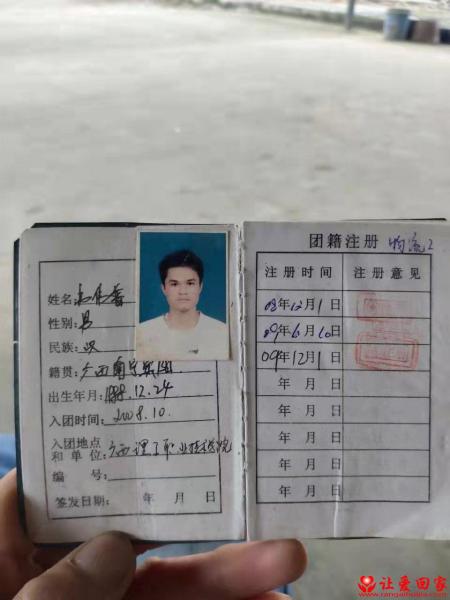 姓名:
性别:男
民族:汉
籍贯:广西南宁宾阳
出生年月:1988.12.24
入团时间:2008.10.
入团地点
和单位:广西理工职业技术学院
编 号:
签发日期: 年 月 日
团籍注册 物流2
注册时间 注册意见
08年12月1日
09年6月10日
09年12月1日
年 月 日
年 月 日
年 月 日
年 月 日
年 月 日
让爱回家
www.rangaihuijia.com